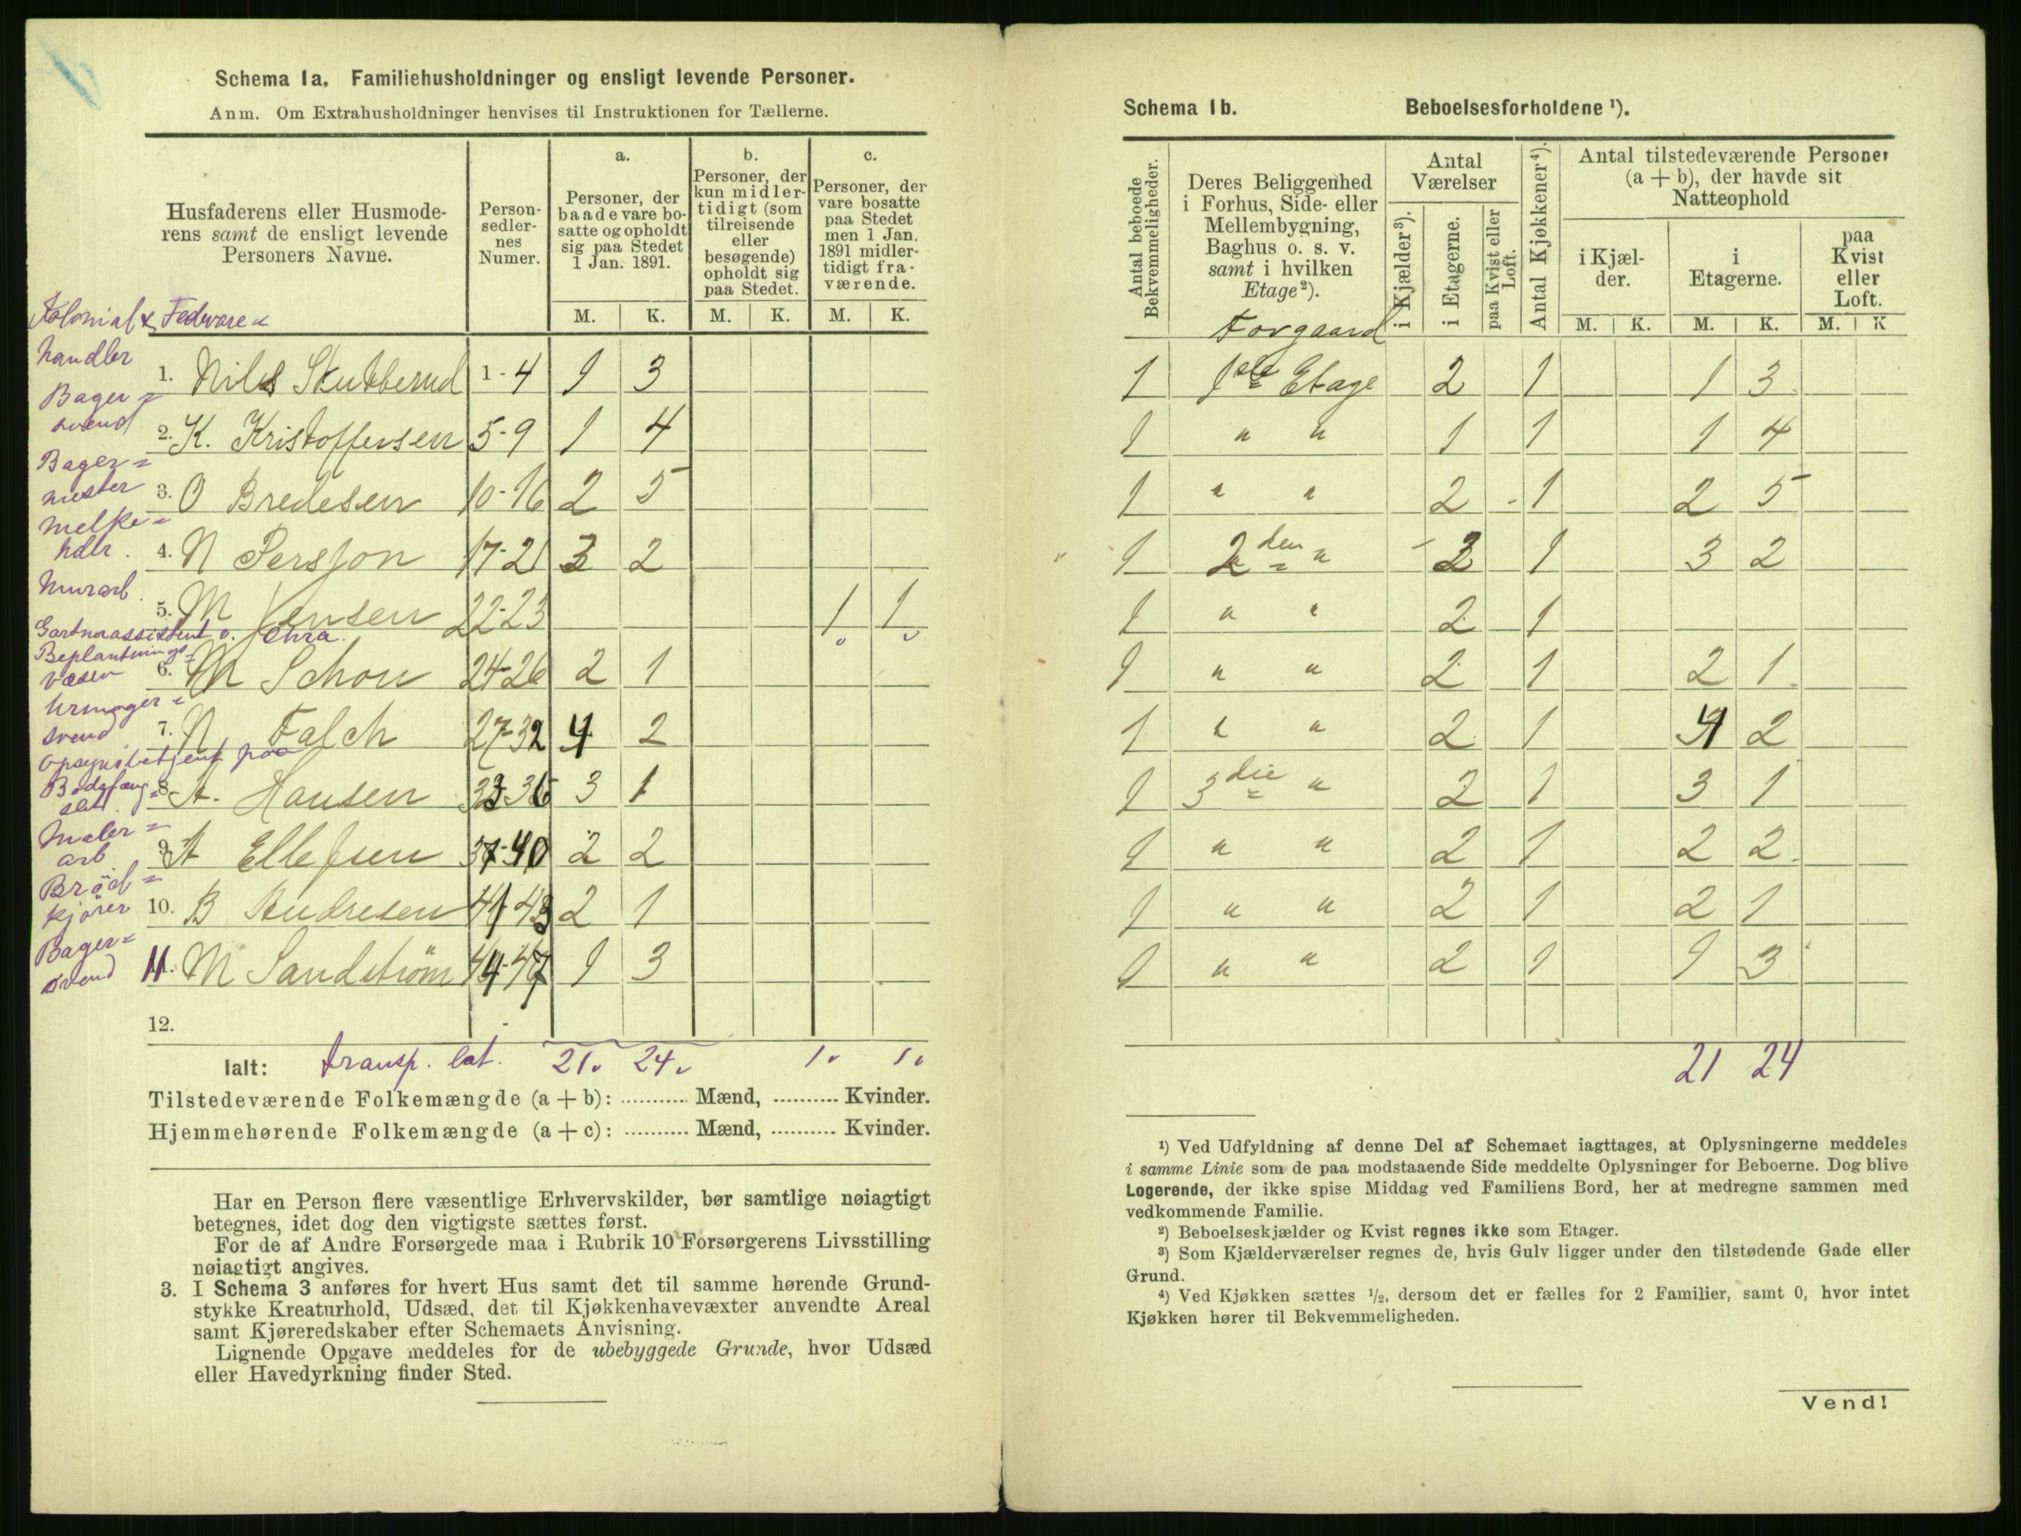 Schema 1a. Familiehusholdninger og ensligt levende Personer.
Anm. Om Extrahusholdninger henvises til Instruktionen for Tællerne.
Husfaderens eller Husmode-
rens samt de ensligt levende
Personers Navne.
Person-
sedler-
nes
Numer.
a.
Personer, der
baade vare bo-
satte og opholdt
sig paa Stedet
1 Jan. 1891.
b.
Personer, der
kun midler-
tidigt (som
tilreisende
eller
besøgende)
opholdt sig
paa Stedet.
c.
Personer, der
vare bosatte
paa Stedet
men 1 Jan.
1891 midler-
tidigt fra-
værende.
M. K. M. K. M. K.
Kolonial & Fedvare=
handler
1. Nils Skutberud 1-4 1 3
Bager=
svend
2. K. Kristoffersen 5-9 1 4
Bager=
mester
3. O Bredesen 10-16 2 5
Melke=
hdlr.
4. N Persson 17-21 3 2
Murarb.
5. M Jensen 22-23 1 1
Gartnerassistent v. Chra.
Beplantnings=
væsen
6. M Schou 24-26 2 1
Urmager=
svend
7. N Falch 27-32 4 2
Opsynsbetjent paa
Bodsfæng=
slet.
8. A. Hansen 33-36 3 1
Maler=
arb.
9. A Ellefsen 37-40 2 2
Brød=
kjører
10. B Andresen 41-43 2 1
Bager=
svend
11. M Sandstrøm 44-47 1 3
12.
Ialt: transp. lat. 21. 24. 1. 1.
Tilstedeværende Folkemængde (a + b): .......... Mænd, .......... Kvinder.
Hjemmehørende Folkemængde (a + c): .......... Mænd, .......... Kvinder.
Har en Person flere væsentlige Erhvervskilder, bør samtlige nøiagtigt
betegnes, idet dog den vigtigste sættes først.
For de af Andre Forsørgede maa i Rubrik 10 Forsørgerens Livsstilling
nøiagtigt angives.
3. I Schema 3 anføres for hvert Hus samt det til samme hørende Grund-
stykke Kreaturhold, Udsæd, det til Kjøkkenhavevæxter anvendte Areal
samt Kjøreredskaber efter Schemaets Anvisning.
Lignende Opgave meddeles for de ubebyggede Grunde, hvor Udsæd
eller Havedyrkning finder Sted.
Schema 1b. Beboelsesforholdene ¹).
Antal beboede
Bekvemmeligheder.
Deres Beliggenhed
i Forhus, Side- eller
Mellembygning,
Baghus o. s. v.
samt i hvilken
Etage²).
Antal
Værelser
i Kjælder³).
i Etagerne.
paa Kvist eller
Loft.
Antal Kjøkkener⁴).
Antal tilstedeværende Personer
(a + b), der havde sit
Natteophold
i Kjæl-
der.
i
Etagerne.
paa
Kvist
eller
Loft.
M. K. M. K. M. K
Forgaard
1 1ste Etage 2 1 1 3
1 " " 1 1 1 4
1 " " 2 1 2 5
1 2den " 3 1 3 2
1 " " 2 1
1 " " 2 1 2 1
1 " " 2 1 4 2
1 3die " 2 1 3 1
1 " " 2 1 2 2
1 " " 2 1 2 1
1 " " 2 1 1 3
21 24
¹) Ved Udfyldning af denne Del af Schemaet iagttages, at Oplysningerne meddeles
i samme Linie som de paa modstaaende Side meddelte Oplysninger for Beboerne. Dog blive
Logerende, der ikke spise Middag ved Familiens Bord, her at medregne sammen med
vedkommende Familie.
²) Beboelseskjælder og Kvist regnes ikke som Etager.
³) Som Kjælderværelser regnes de, hvis Gulv ligger under den tilstødende Gade eller
Grund.
⁴) Ved Kjøkken sættes ¹/₂, dersom det er fælles for 2 Familier, samt 0, hvor intet
Kjøkken hører til Bekvemmeligheden.
Vend!